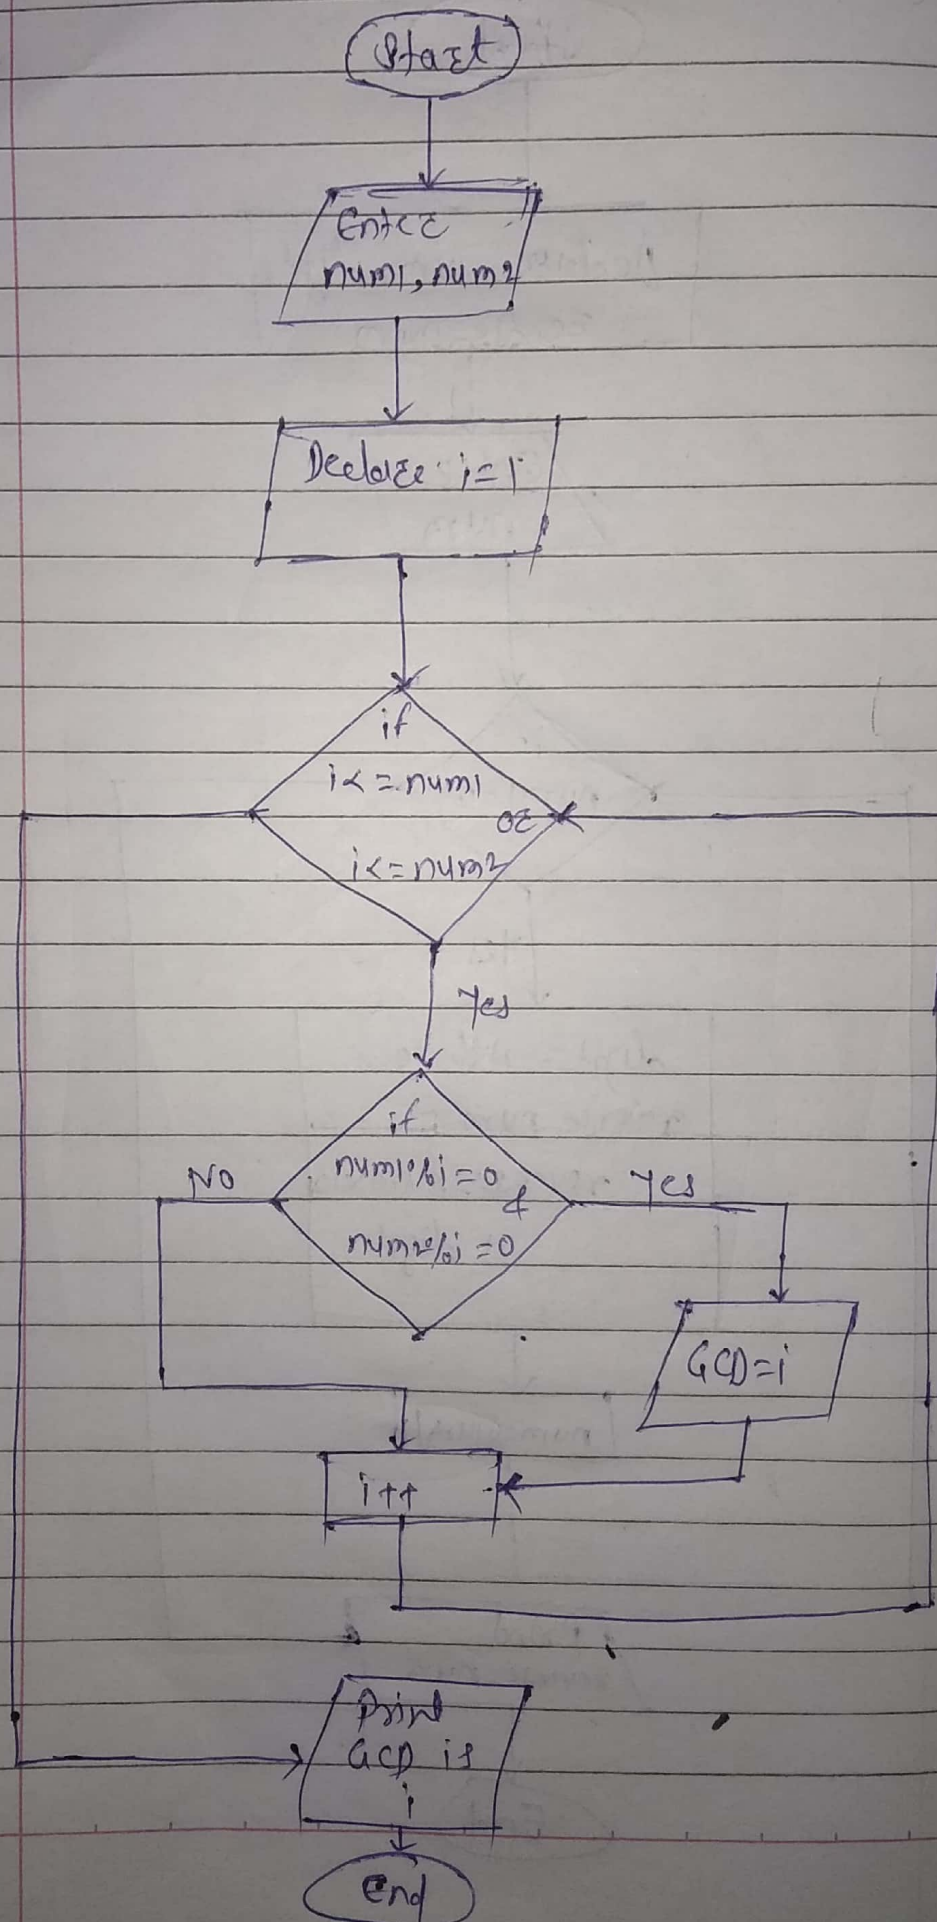 Start
Enter
num1, num2
Declare i=1
if
i<=num1
or
i<=num2
Yes
if
num1%i=0
&
num2%i=0
NO
Yes
GCD=i
i++
Print
GCD is
i
End